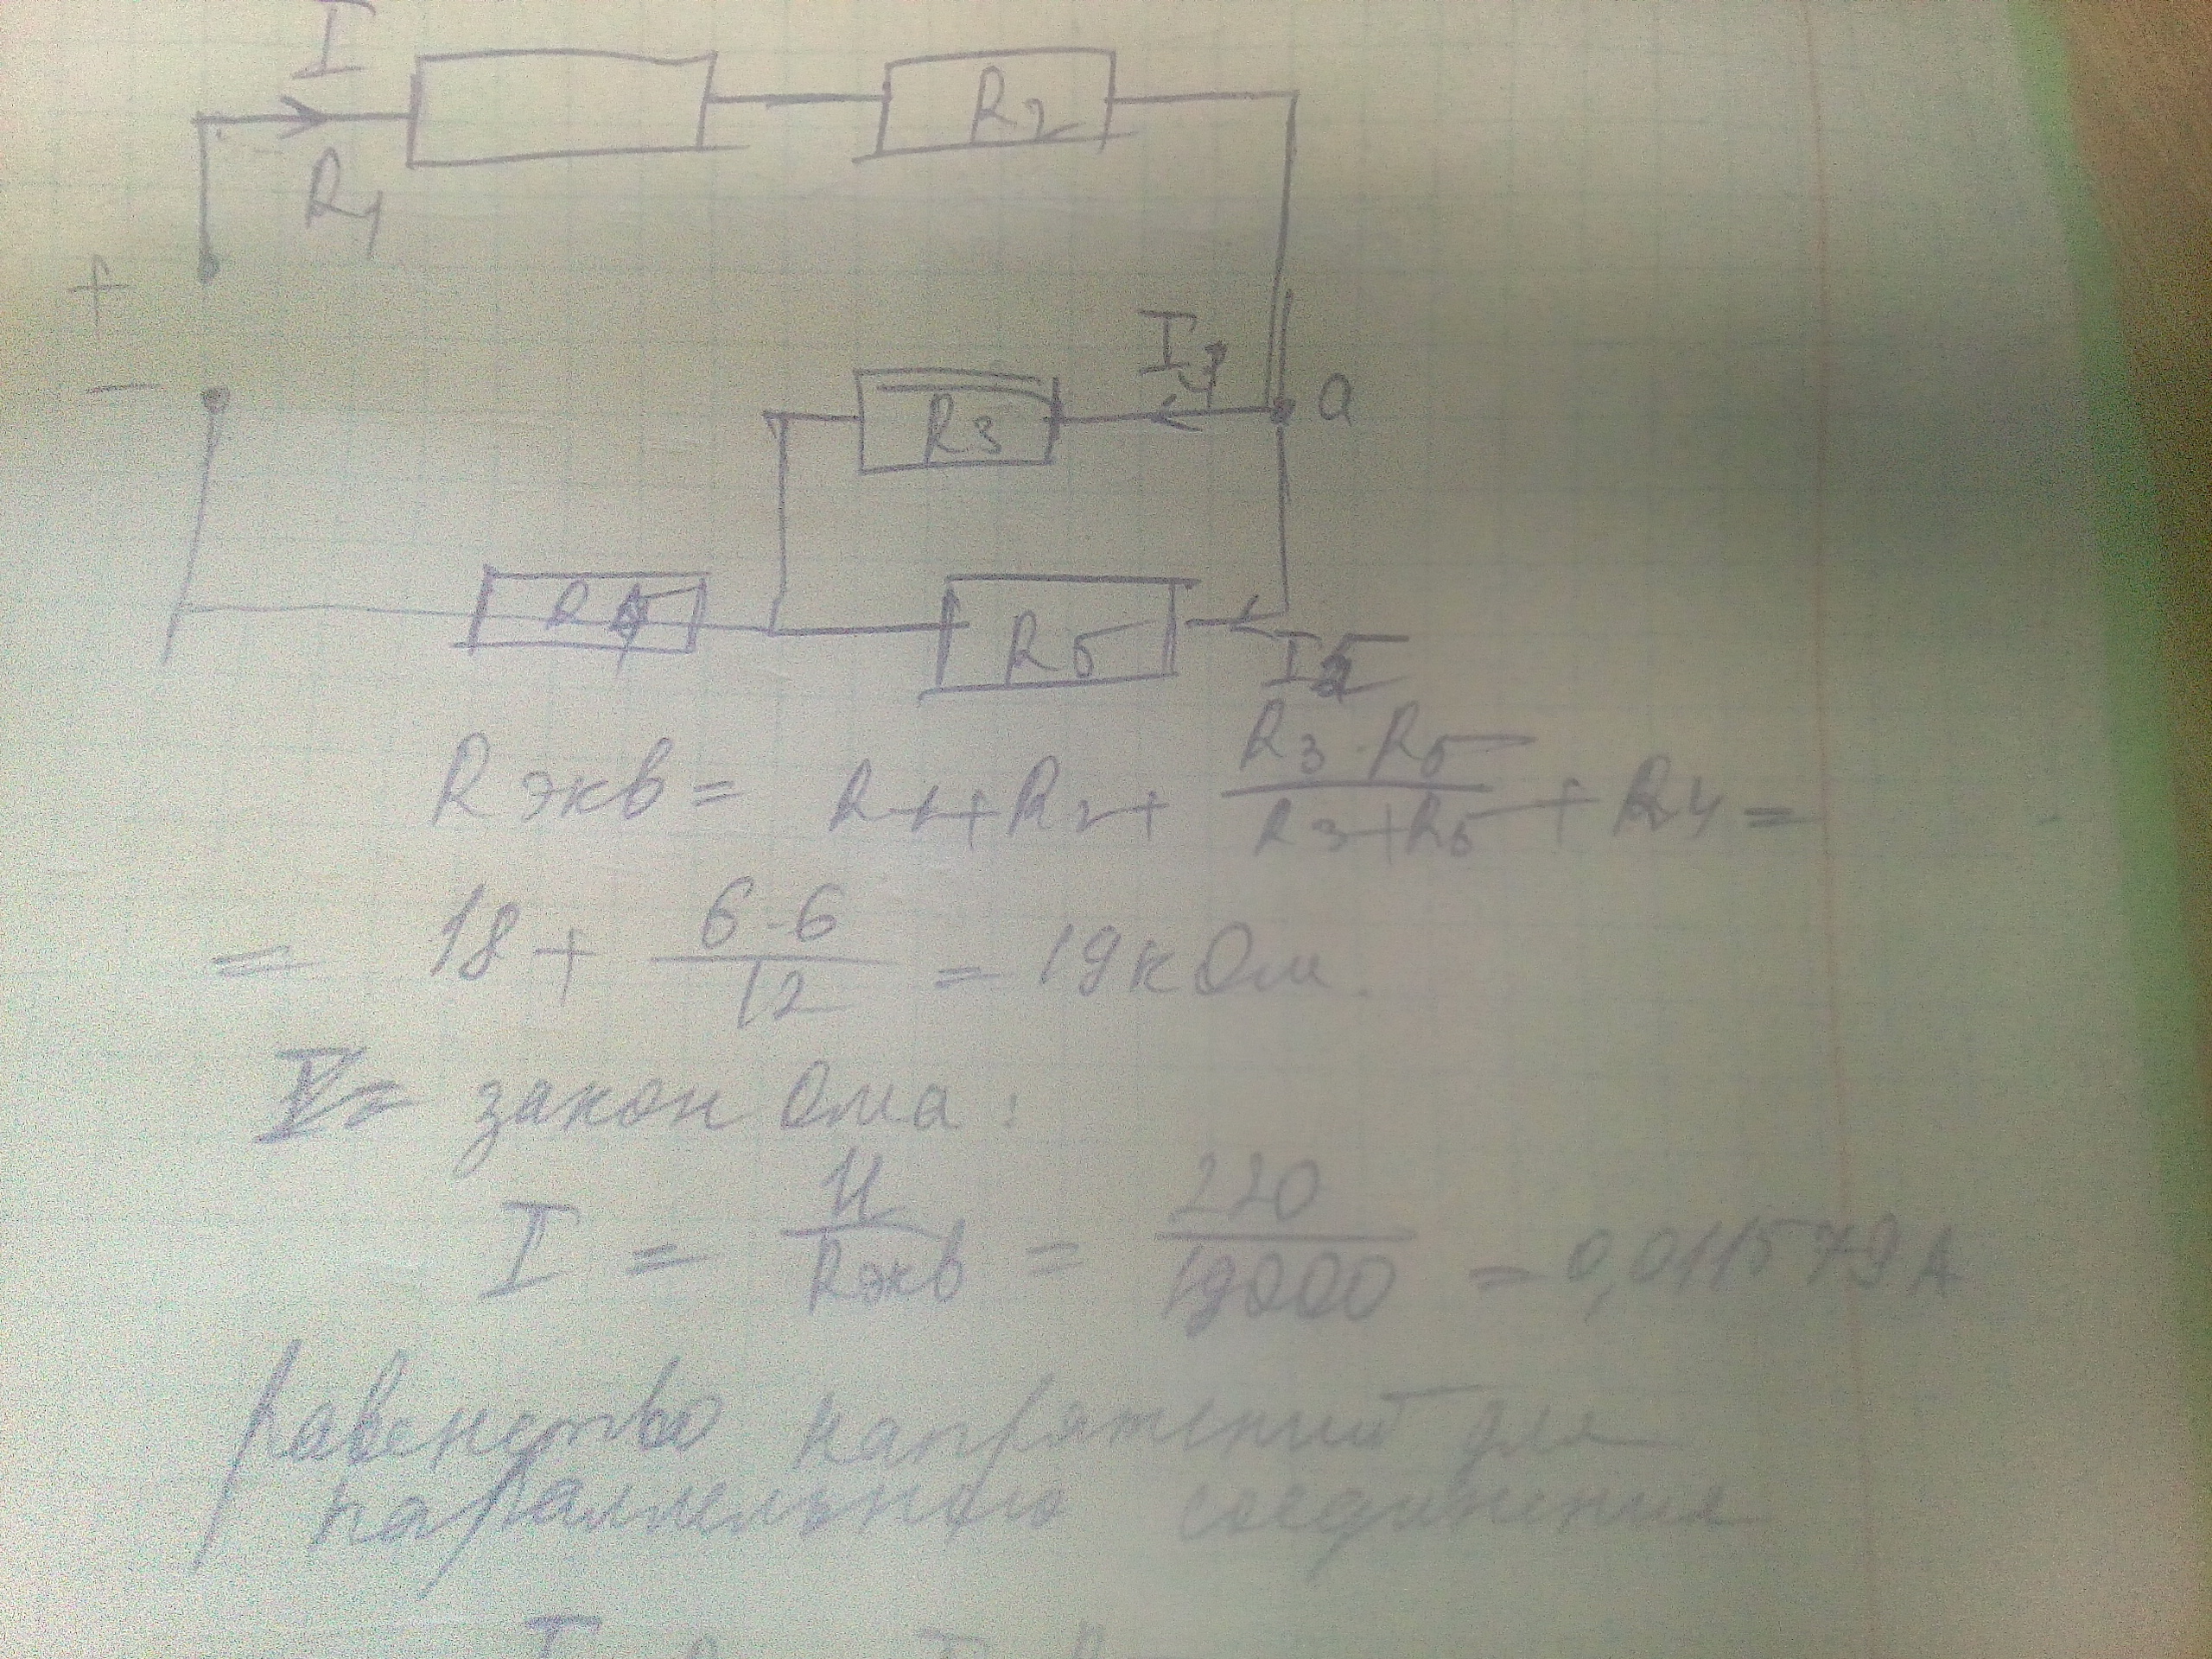 I
R2
R1
+
I3
−
R3
a
R4
R5
I5
Rэкв = R1+R2+ R3·R5 / R3+R5 + R4 =
= 18 + 6·6 / 12 = 19 кОм.
закон Ома:
I = U / Rэкв = 220 / 19000 = 0,011579 А
равенство напряжений для
параллельного соединения